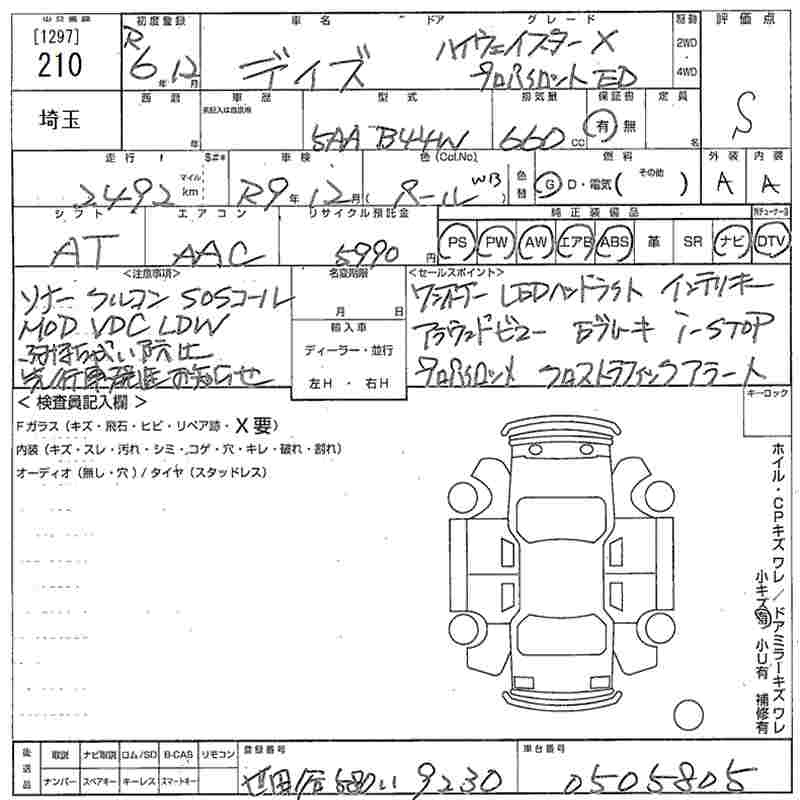 [1297]
210
埼玉
初度登録
R
6年 12月
車名
ドア
グレード
デイズ
ハイウェイスター X
プロパイロット ED
駆動
2WD
・
4WD
評価点
S
西暦
年
車歴
型式
5AA B44W
排気量
660 cc
保証書
有 無
定員
名
走行
2492
マイル
km
S#*
車検
R9年 12月
色(Col.No)
パール WB
色替
燃料
G D・電気( その他 )
外装
A
内装
A
シフト
AT
エアコン
AAC
リサイクル預託金
5990円
純正装備品
PS PW AW エアB ABS 革 SR ナビ DTV
<注意事項>
ソナー フルコン SOSコール
MOD VDC LDW
ふみまちがい防止
先行車発進お知らせ
名変期限
月 日
輸入車
ディーラー・並行
左H ・ 右H
<セールスポイント>
ワンオーナー LEDヘッドライト インテリキー
アラウンドビュー Eブレーキ i-STOP
プロパイロット クロストラフィックアラート
キーロック
<検査員記入欄>
Fガラス(キズ・飛石・ヒビ・リペア跡・X要)
内装(キズ・スレ・汚れ・シミ・コゲ・穴・キレ・破れ・割れ)
オーディオ(無し・穴)/タイヤ(スタッドレス)
ホイル・CPキズ ワレ/ドアミラーキズ ワレ
小キズ有 小U有 補修有
後送品
取説 ナビ取説 ロム/SD B-CAS リモコン
ナンバー スペアキー キーレス スマートキー
登録番号
世田谷 580 い 9230
車台番号
0505805